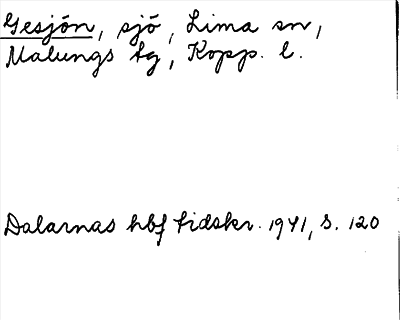 Gesjön, sjö, Lima sn,
Malungs tg, Kopp. l.
Dalarnas hbf tidskr. 1941, s. 120